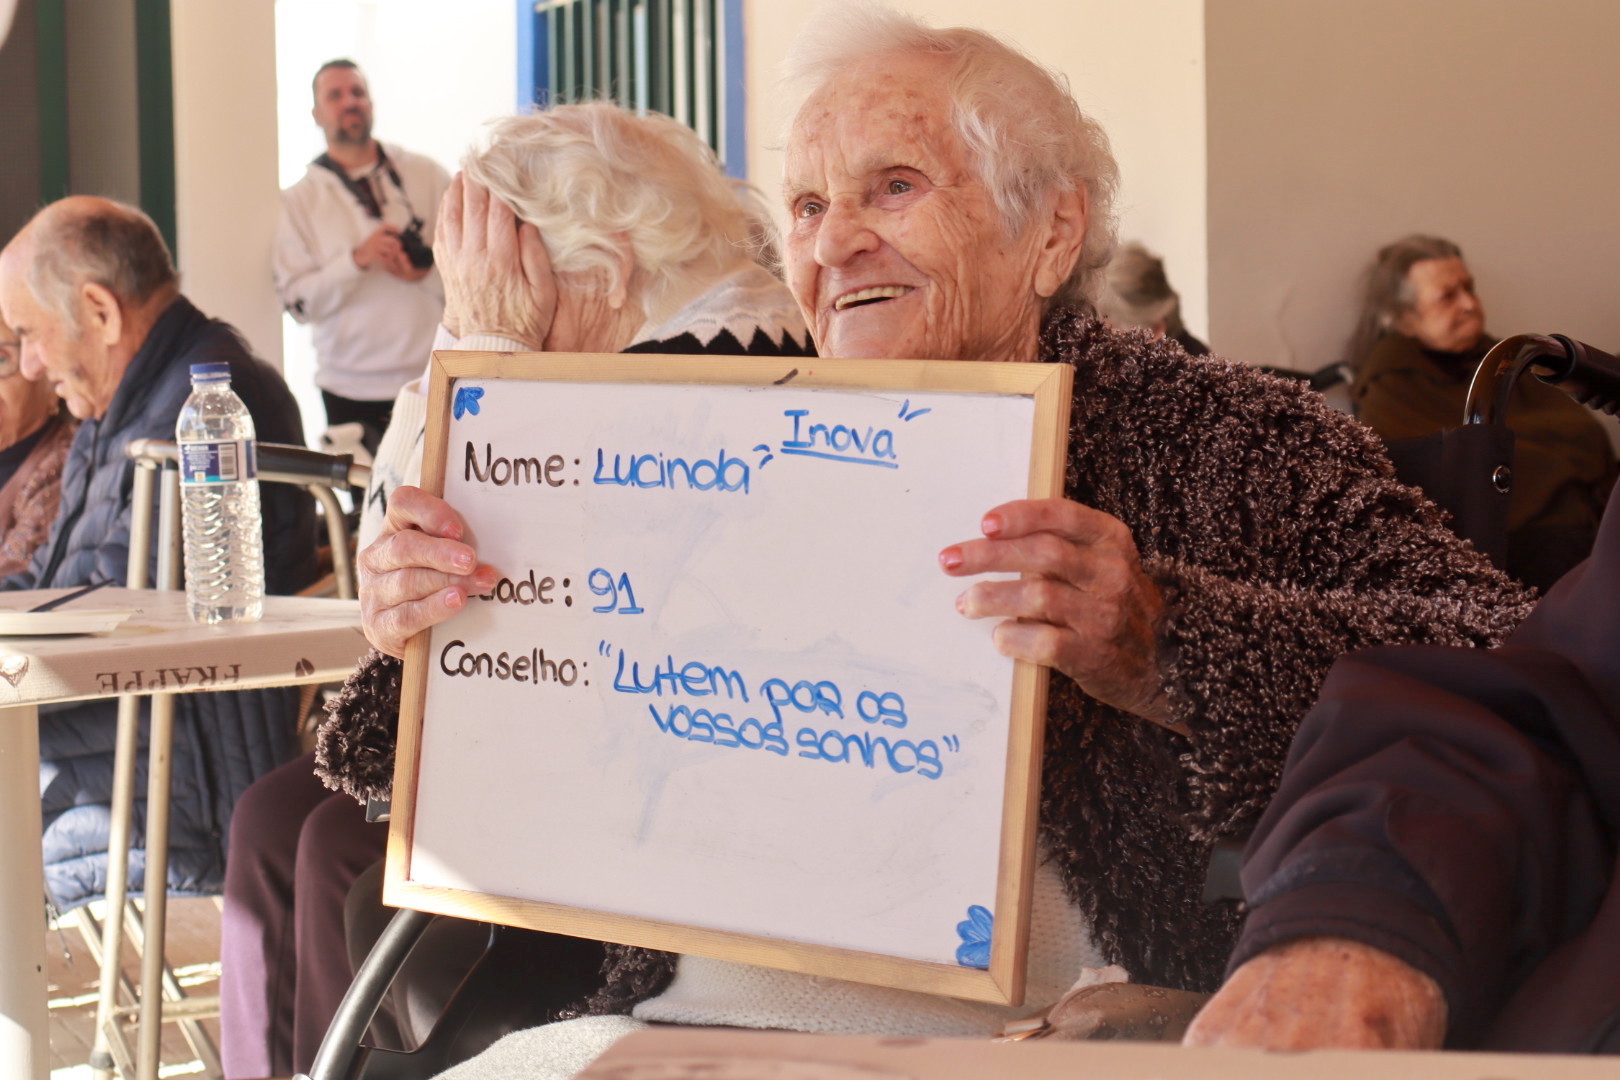 Inova
Nome: Lucinda
dade: 91
Conselho: "Lutem por os
vossos sonhos"
FRAPPE